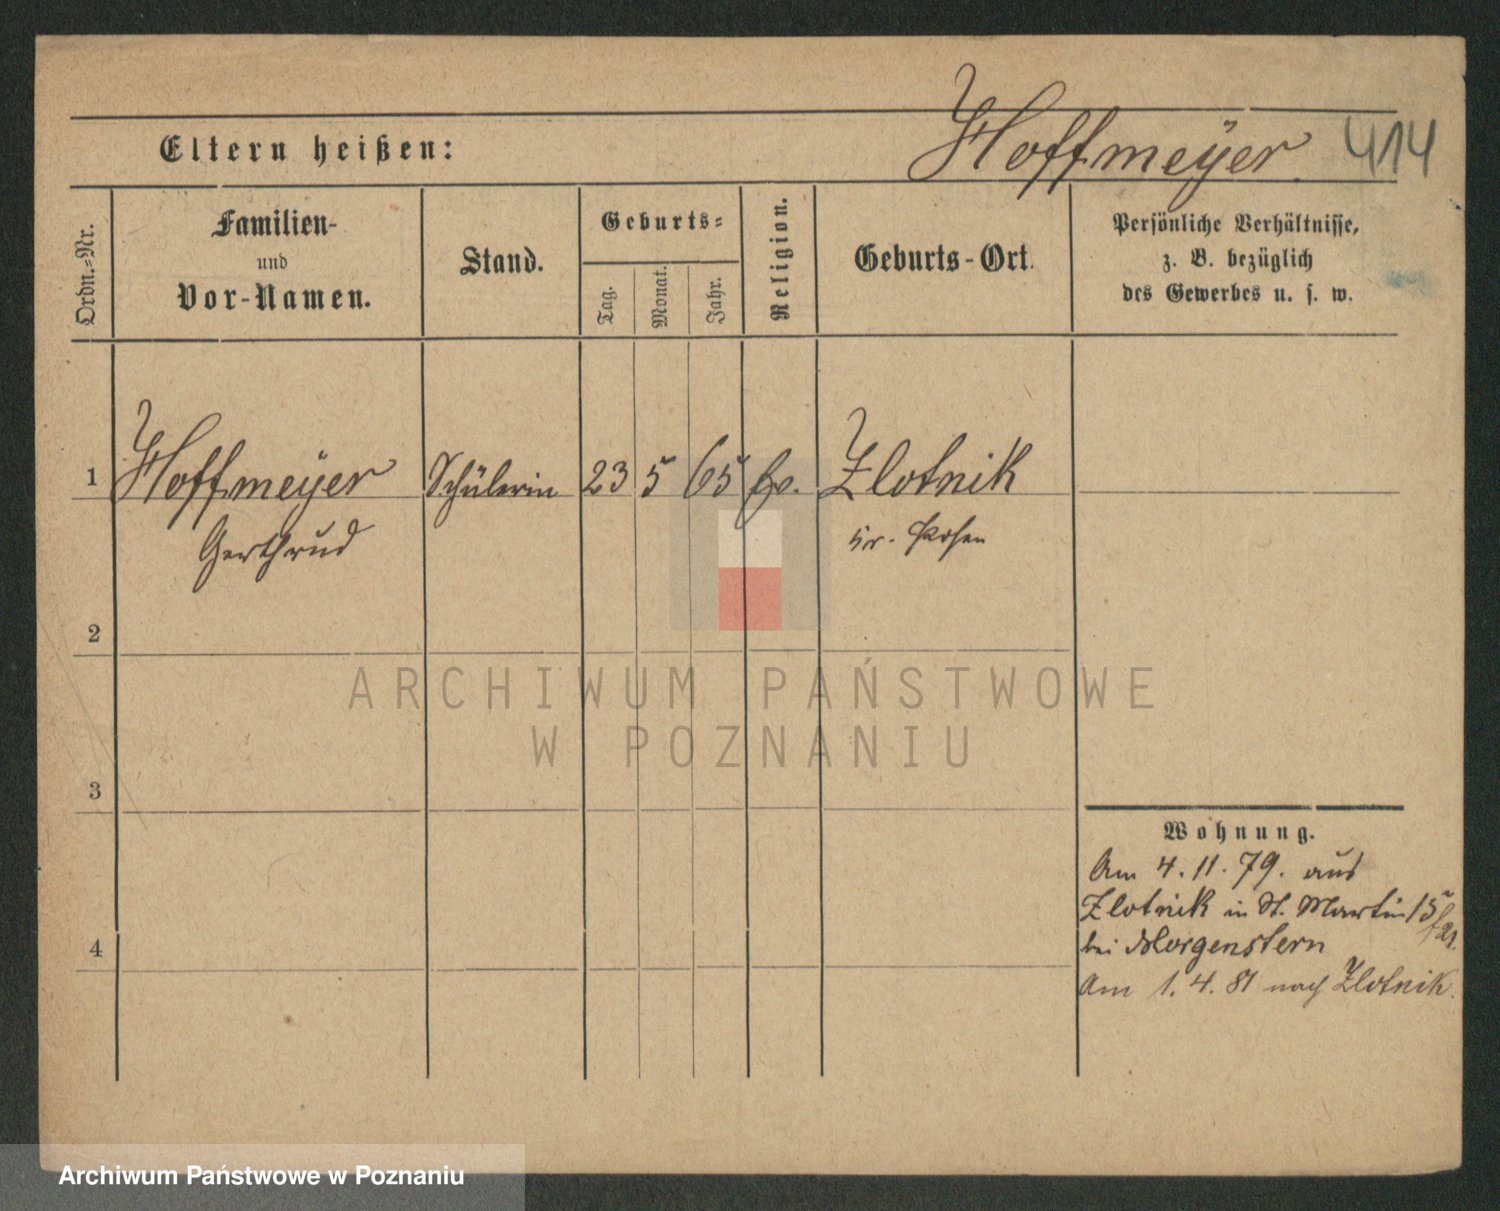 Hoffmeÿer. 414
Eltern heißen:
Ordn.-Nr.
Familien-
und
Vor-Namen.
Stand.
Geburts-
Tag.
Monat.
Jahr.
Religion.
Geburts-Ort.
Persönliche Verhältnisse,
z. B. bezüglich
des Gewerbes u. s. w.
1 Hoffmeÿer Schülerin 23 5 65 Zlotnik
Gerthrud
Kr. Posen
2
3
4
Wohnung.
Am 4. 11. 79. aus
Zlotnik in St. Martin 15
bei Morgenstern
Am 1. 4. 81 nach Zlotnik.
ARCHIWUM PAŃSTWOWE
W POZNANIU
Archiwum Państwowe w Poznaniu